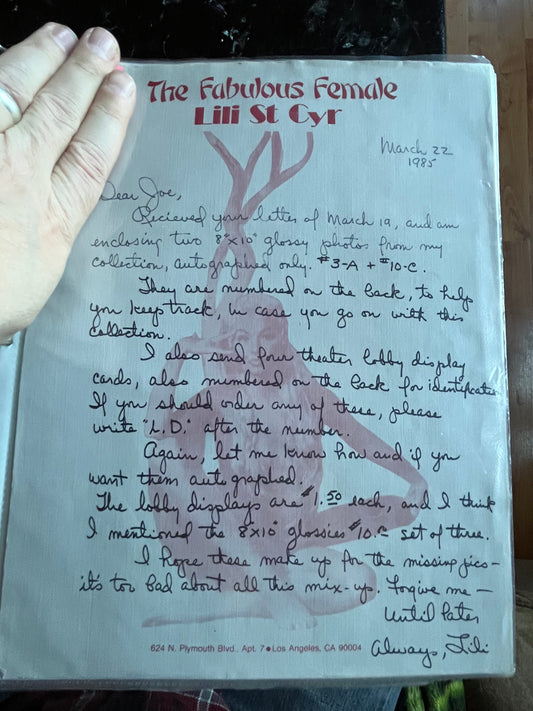 The Fabulous Female
Lili St Cyr
March 22
1985
Dear Joe,
Recieved your letter of March 19, and am
enclosing two 8"x10" glossy photos from my
collection, autographed only. #3-A + #10-C.
They are numbered on the back, to help
you keep track, in case you go on with this
collection.
I also send four theater lobby display
cards, also numbered on the back for identification
If you should order any of these, please
write "L.D." after the number.
Again, let me know how and if you
want them autographed.
The lobby displays are $1.50 each, and I think
I mentioned the 8x10" glossies $10.00 set of three.
I hope these make up for the missing pics—
it's too bad about all this mix-up. Forgive me—
Until later
Always, Lili
624 N. Plymouth Blvd., Apt. 7 • Los Angeles, CA 90004